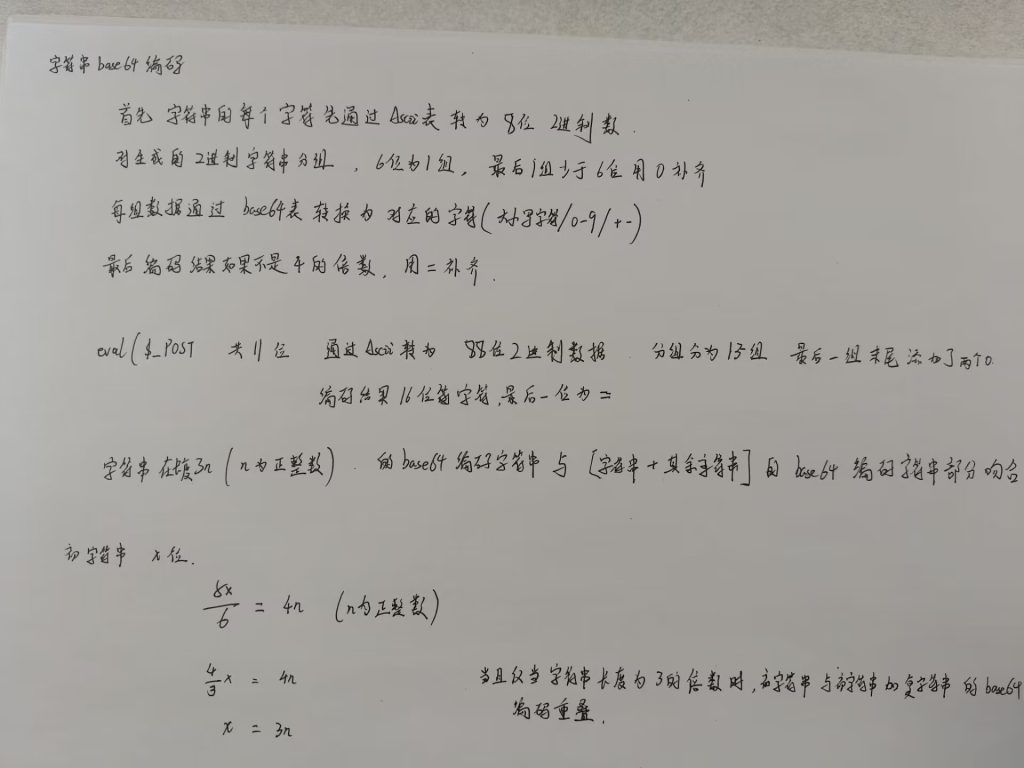 字符串base64编码
首先 字符串的每个字符先通过Ascii表 转为 8位 2进制数.
对生成的2进制字符串分组，6位为1组，最后1组少于6位用0补齐
每组数据通过 base64表 转换为 对应的字符(大小写字符/0-9/+-)
最后编码结果如果不是4的倍数，用=补齐.
eval($_POST 共11位 通过Ascii转为 88位2进制数据 分组分为15组 最后一组末尾添加了两个0
编码结果16位符字符,最后一位为=
字符串长度3n(n为正整数). 的base64编码字符串与[字符串+其余字符串]的base64编码字符串部分吻合
初字符串 x位.
8x/6 = 4n (n为正整数)
4/3 x = 4n
x = 3n
当且仅当字符串长度为3的倍数时,初字符串与初字符串的复字符串的base64
编码重叠.